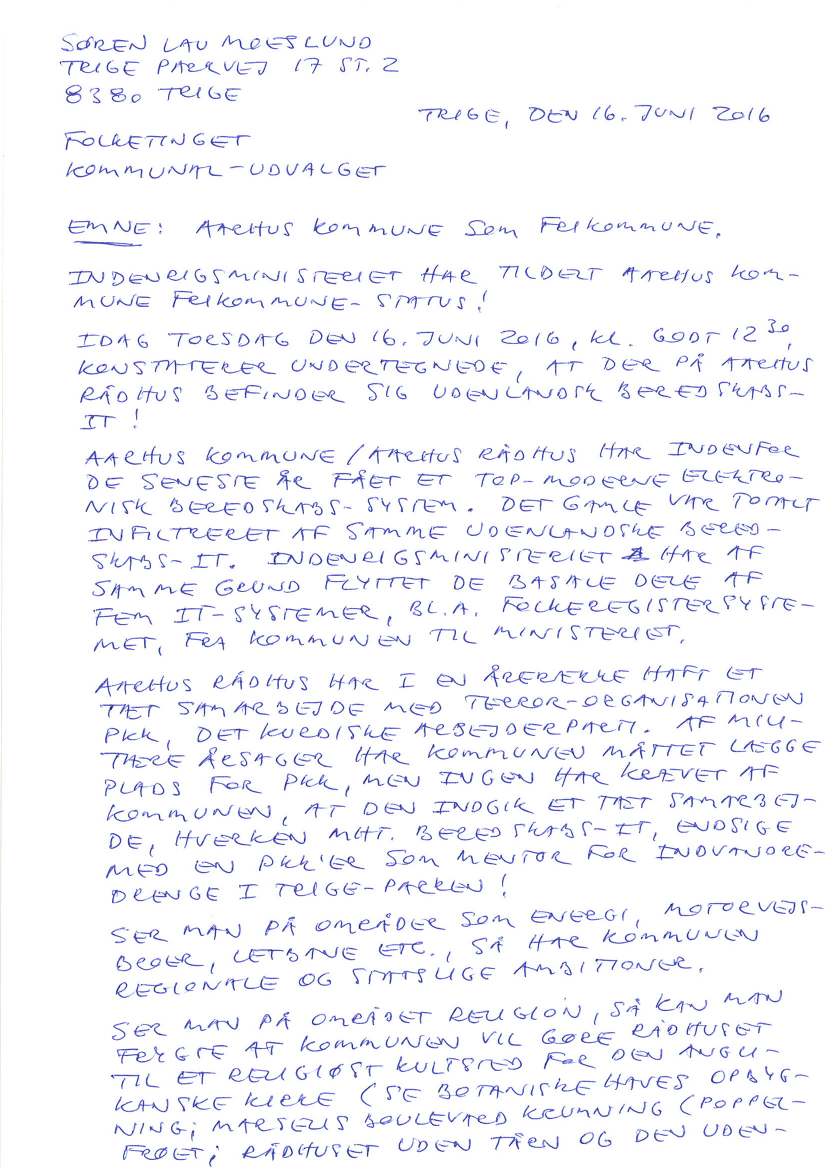 SØREN LAU MOESLUND
TRIGE PARKVEJ 17 ST. 2
8380 TRIGE
TRIGE, DEN 16. JUNI 2016
FOLKETINGET
KOMMUNAL-UDVALGET
EMNE: AARHUS KOMMUNE SOM FRIKOMMUNE.
INDENRIGSMINISTERIET HAR TILDELT AARHUS KOM-
MUNE FRIKOMMUNE-STATUS!
IDAG TORSDAG DEN 16. JUNI 2016, KL. GODT 12 30,
KONSTATERER UNDERTEGNEDE, AT DER PÅ AARHUS
RÅDHUS BEFINDER SIG UDENLANDSK BEREDSKABS-
IT!
AARHUS KOMMUNE/AARHUS RÅDHUS HAR INDENFOR
DE SENESTE ÅR FÅET ET TOP-MODERNE ELEKTRO-
NISK BEREDSKABS-SYSTEM. DET GAMLE VAR TOTALT
INFILTRERET AF SAMME UDENLANDSKE BERED-
SKABS-IT. INDENRIGSMINISTERIET HAR AF
SAMME GRUND FLYTTET DE BASALE DELE AF
FEM IT-SYSTEMER, BL.A. FOLKEREGISTERSYSTE-
MET, FRA KOMMUNEN TIL MINISTERIET.
AARHUS RÅDHUS HAR I EN ÅRERÆKKE HAFT ET
TÆT SAMARBEJDE MED TERROR-ORGANISATIONEN
PKK, DET KURDISKE ARBEJDERPARTI. AF MILI-
TÆRE ÅRSAGER HAR KOMMUNEN MÅTTET LÆGGE
PLADS FOR PKK, MEN INGEN HAR KRÆVET AF
KOMMUNEN, AT DEN INDGIK ET TÆT SAMARBEJ-
DE, HVERKEN MHT. BEREDSKABS-IT, ENDSIGE
MED EN PKK'ER SOM MENTOR FOR INDVANDRE-
DRENGE I TRIGE-PARKEN!
SER MAN PÅ OMRÅDER SOM ENERGI, MOTORVEJS-
BROER, LETBANE ETC., SÅ HAR KOMMUNEN
REGIONALE OG STATSLIGE AMBITIONER.
SER MAN PÅ OMRÅDET RELIGION, SÅ KAN MAN
FRYGTE AT KOMMUNEN VIL GØRE RÅDHUSET
TIL ET RELIGIØST KULTSTED FOR DEN ANGLI-
KANSKE KIRKE (SE BOTANISKE HAVES OPBYG-
NING; MARSELIS BOULEVARD KRUMNING (POPPEL-
FRØET; RÅDHUSET UDEN TÅRN OG DEN UDEN-